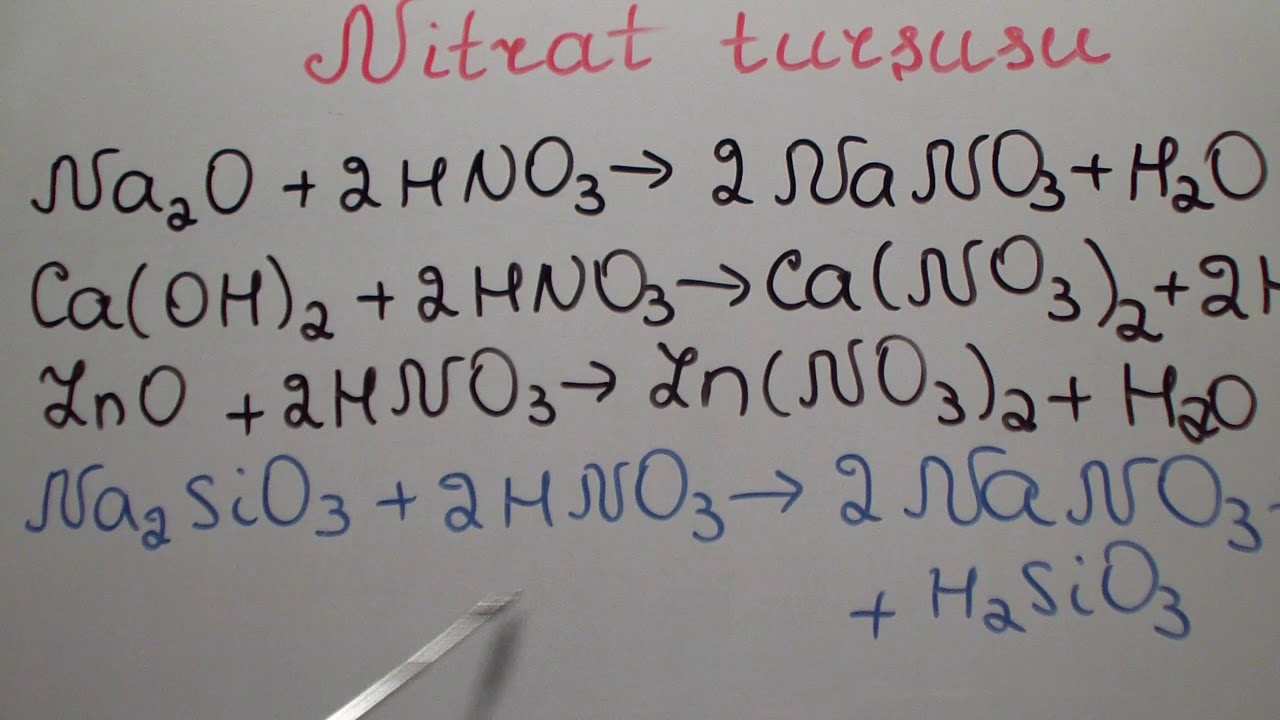 Nitrat turşusu
Na₂O + 2HNO₃ → 2NaNO₃ + H₂O
Ca(OH)₂ + 2HNO₃ → Ca(NO₃)₂ + 2H
ZnO + 2HNO₃ → Zn(NO₃)₂ + H₂O
Na₂SiO₃ + 2HNO₃ → 2NaNO₃
+ H₂SiO₃